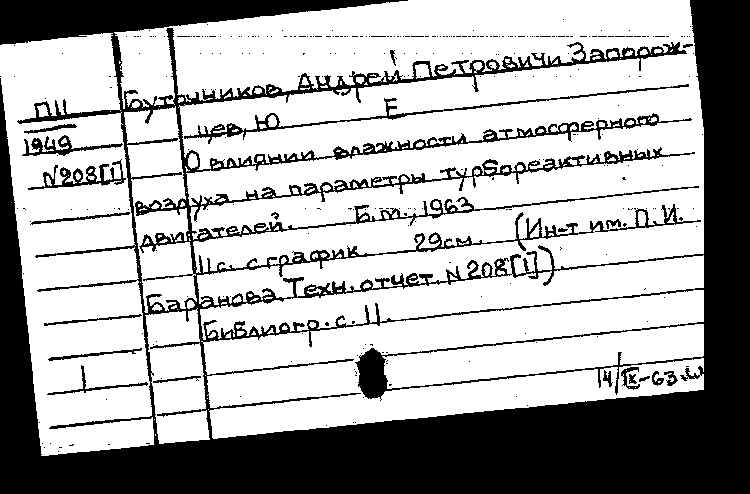 Бутошников, Андрей Петрович и Запорож-
П11
цев, Ю Е
1949
О влиянии влажности атмосферного
N208[1]
воздуха на параметры турбореактивных
двигателей. Б.м., 1963
11с. с график. 29см. (Ин-т им. П.И.
Баранова. Техн. отчет. N208[1]).
Библиогр. с. 11.
1
14/IX-63